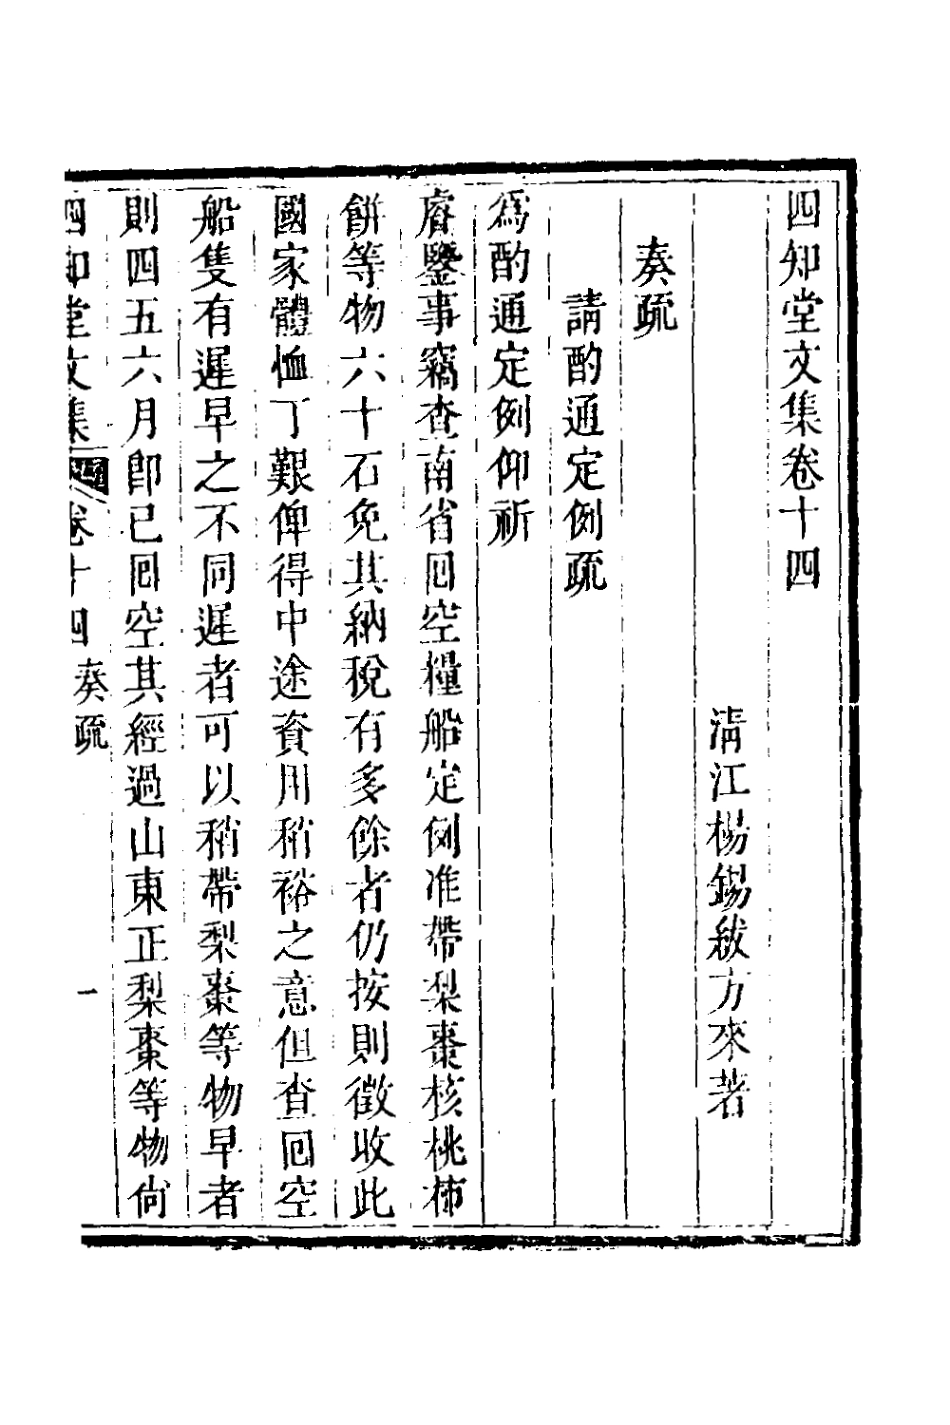 四知堂文集卷十四
清江楊錫紱方來著
奏疏
請酌通定例疏
爲酌通定例仰祈
睿鑒事竊查南省囘空糧船定例准帶梨棗核桃柿
餅等物六十石免其納稅有多餘者仍按則徵收此
國家體恤丁艱俾得中途資用稍裕之意但查囘空
船隻有遲早之不同遲者可以稍帶梨棗等物早者
則四五六月卽已囘空其經過山東正梨棗等物尙
四知堂文集 卷十四 奏疏 一